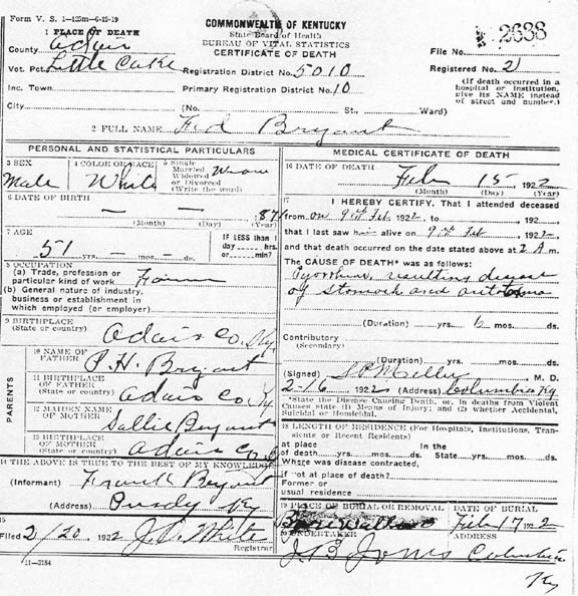 Form V. S. 1-125m-6-25-19
COMMONWEALTH OF KENTUCKY
State Board of Health
BUREAU OF VITAL STATISTICS
CERTIFICATE OF DEATH
1 PLACE OF DEATH
County Adair
Vot. Pct. Little Cake
Inc. Town
City
Registration District No. 5010
Primary Registration District No. 10
(No. St., Ward)
File No. 2638
Registered No. 2
(If death occurred in a
hospital or institution,
give its NAME instead
of street and number.)
2 FULL NAME Fed Bryant
PERSONAL AND STATISTICAL PARTICULARS
3 SEX
Male
4 COLOR OR RACE
White
5 Single
Married
Widowed
or Divorced
(Write the word)
6 DATE OF BIRTH
— — 187
(Month) (Day) (Year)
7 AGE
51 yrs. — mos. — ds.
IF LESS than 1
day ...... hrs.
or ...... min?
8 OCCUPATION
(a) Trade, profession or
particular kind of work
(b) General nature of industry,
business or establishment in
which employed (or employer)
9 BIRTHPLACE
(State or country) Adair Co. Ky
PARENTS
10 NAME OF
FATHER P. H. Bryant
11 BIRTHPLACE
OF FATHER
(State or country) Adair Co. Ky
12 MAIDEN NAME
OF MOTHER Sallie Bryant
13 BIRTHPLACE
OF MOTHER
(State or country) Adair Co.
14 THE ABOVE IS TRUE TO THE BEST OF MY KNOWLEDGE
(Informant) Frank Bryant
(Address) Purdy Ky
15
Filed 2/20 1922 J. C. White
Registrar
11-3184
MEDICAL CERTIFICATE OF DEATH
16 DATE OF DEATH
Feb 15 1922
(Month) (Day) (Year)
17 I HEREBY CERTIFY, That I attended deceased
from on 9th Feb 1922, to , 192
that I last saw him alive on 9th Feb 1922
and that death occurred on the date stated above at 2 A m.
The CAUSE OF DEATH* was as follows:
Pyorrhea, resulting disease
of stomach and
(Duration) yrs. 6 mos. ds.
Contributory
(Secondary)
(Duration) yrs. mos. ds.
(Signed) Miller M. D.
2-16 1922 (Address) Columbia Ky
*State the Disease Causing Death, or, in deaths from Violent
Causes state (1) Means of Injury; and (2) whether Accidental,
Suicidal or Homicidal.
18 LENGTH OF RESIDENCE (For Hospitals, Institutions, Transients
or Recent Residents)
At place In the
of death yrs. mos. ds. State yrs. mos. ds.
Where was disease contracted,
if not at place of death?
Former or
usual residence
19 PLACE OF BURIAL OR REMOVAL
DATE OF BURIAL
Feb 17 1922
20 UNDERTAKER
J. B. Jones
ADDRESS
Columbia
Ky